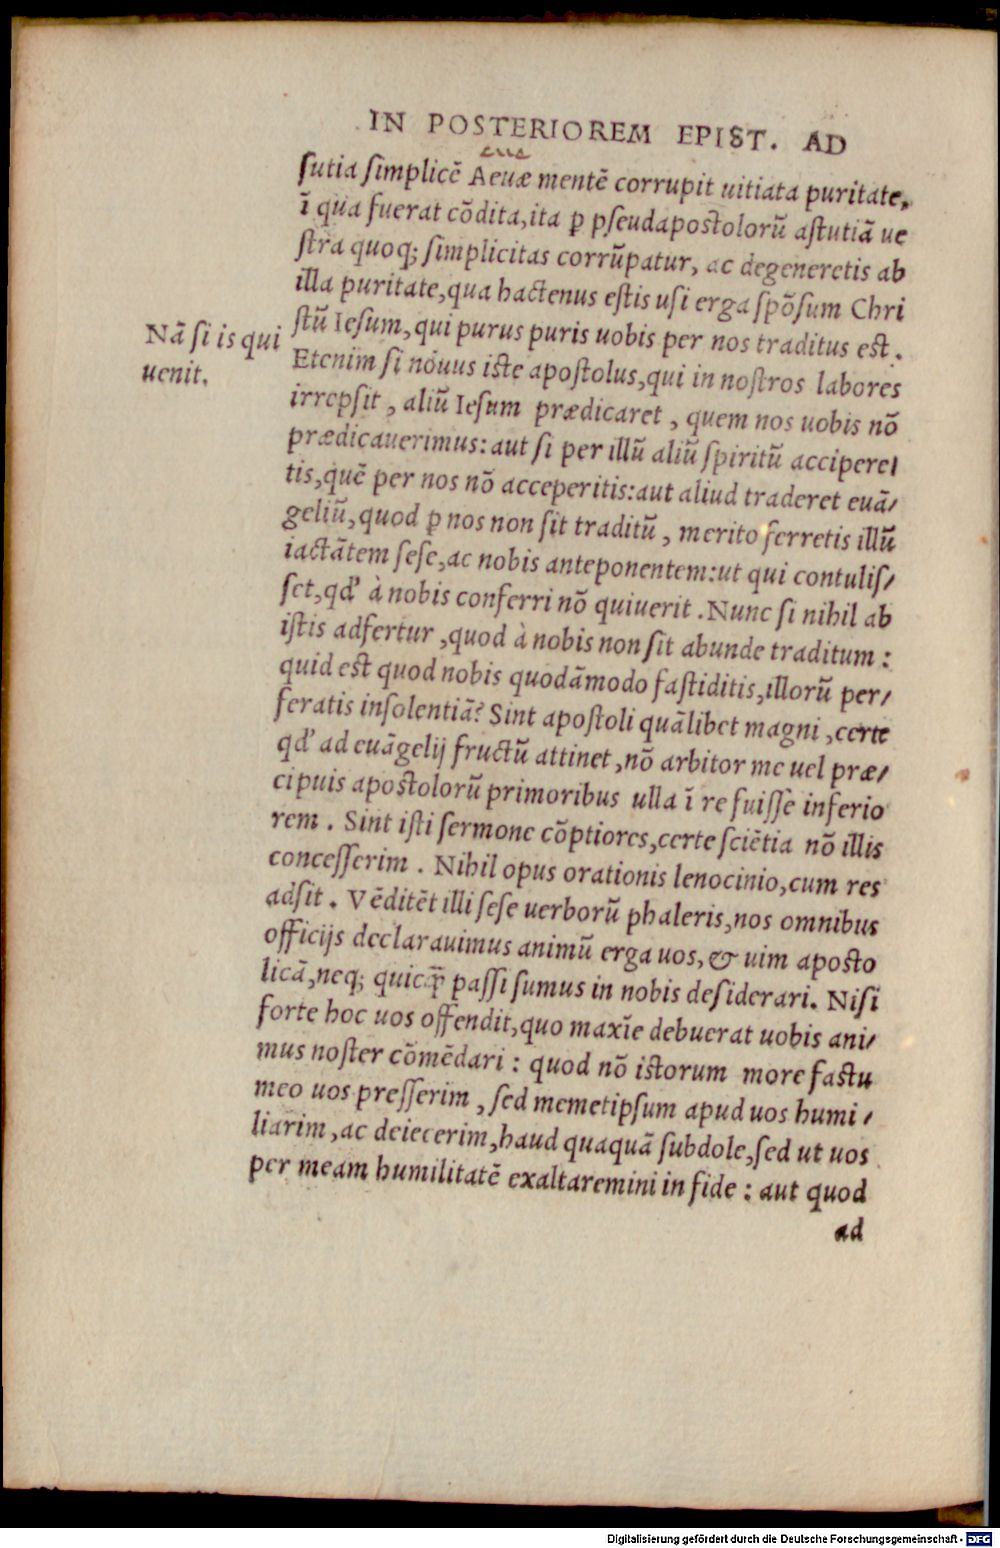 IN POSTERIOREM EPIST. AD
eue
ſutia ſimplicē Aeuæ mentē corrupit uitiata puritate,
ī qua fuerat cōdita, ita ꝑ pſeudapostolorū aſtutiā ue
ſtra quoq; ſimplicitas corrūpatur, ac degeneretis ab
illa puritate, qua hactenus eſtis uſi erga ſpōſum Chri
ſtū Ieſum, qui purus puris uobis per nos traditus est.
Nā ſi is qui
uenit.
Etenim ſi nouus iste apoſtolus, qui in noſtros labores
irrepſit, aliū Ieſum prædicaret, quem nos uobis nō
prædicauerimus: aut ſi per illū aliū ſpiritū accipere/
tis, quē per nos nō acceperitis: aut aliud traderet euā/
geliū, quod ꝑ nos non ſit traditū, merito ferretis illū
iactātem ſeſe, ac nobis anteponentem: ut qui contulis/
ſet, qd' à nobis conferri nō quiuerit. Nunc ſi nihil ab
iſtis adfertur, quod à nobis non ſit abunde traditum:
quid est quod nobis quodāmodo faſtiditis, illorū per/
feratis inſolentiā? Sint apoſtoli quālibet magni, certe
qd' ad euāgelij fructū attinet, nō arbitor me uel præ/
cipuis apostolorū primoribus ulla ī re fuiſſe inferio
rem. Sint iſti ſermone cōptiores, certe ſciētia nō illis
conceſſerim. Nihil opus orationis lenocinio, cum res
adſit. Vēditēt illi ſeſe uerborū phaleris, nos omnibus
officijs declarauimus animū erga uos, & uim aposto
licā, neq; quicꝗ̄ paſſi ſumus in nobis deſiderari. Niſi
forte hoc uos offendit, quo maxīe debuerat uobis ani/
mus noſter cōmēdari: quod nō istorum more faſtu
meo uos preſſerim, ſed memetipſum apud uos humi/
liarim, ac deiecerim, haud quaquā ſubdole, ſed ut uos
per meam humilitatē exaltaremini in fide: aut quod
ad
Digitalisierung gefördert durch die Deutsche Forschungsgemeinschaft - DFG